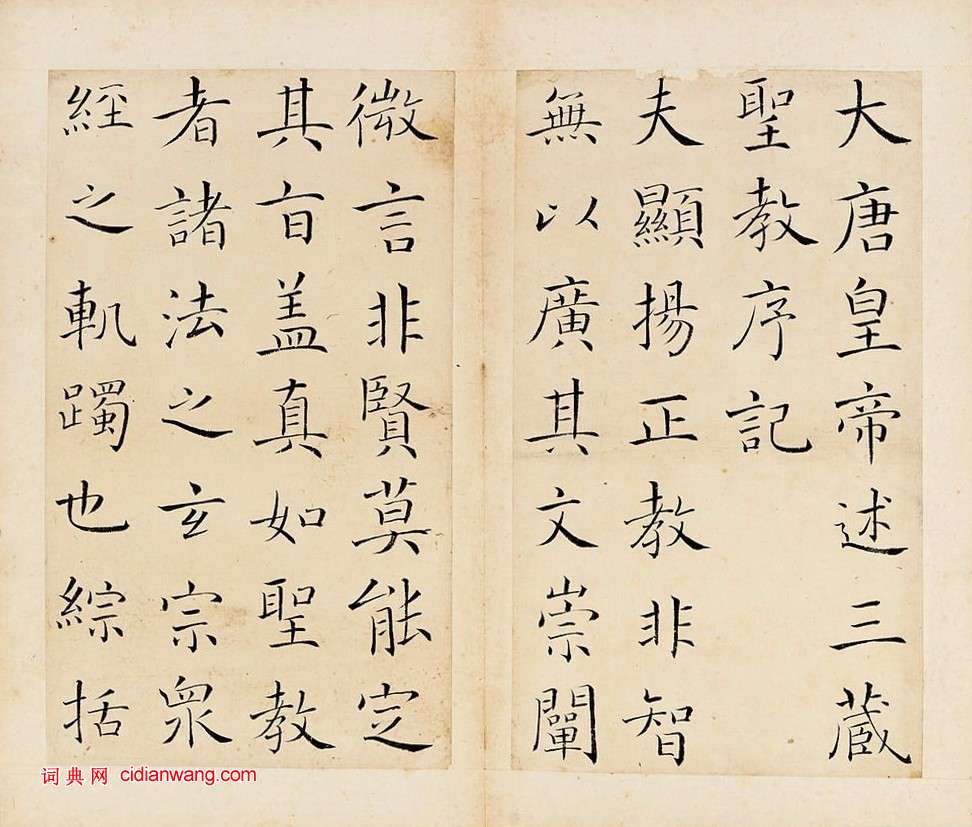 大唐皇帝述三藏
聖教序記
夫顯揚正教非智
無以廣其文崇闡
微言非賢莫能定
其旨盖真如聖教
者諸法之玄宗衆
經之軌躅也綜括
词典网 cidianwang.com